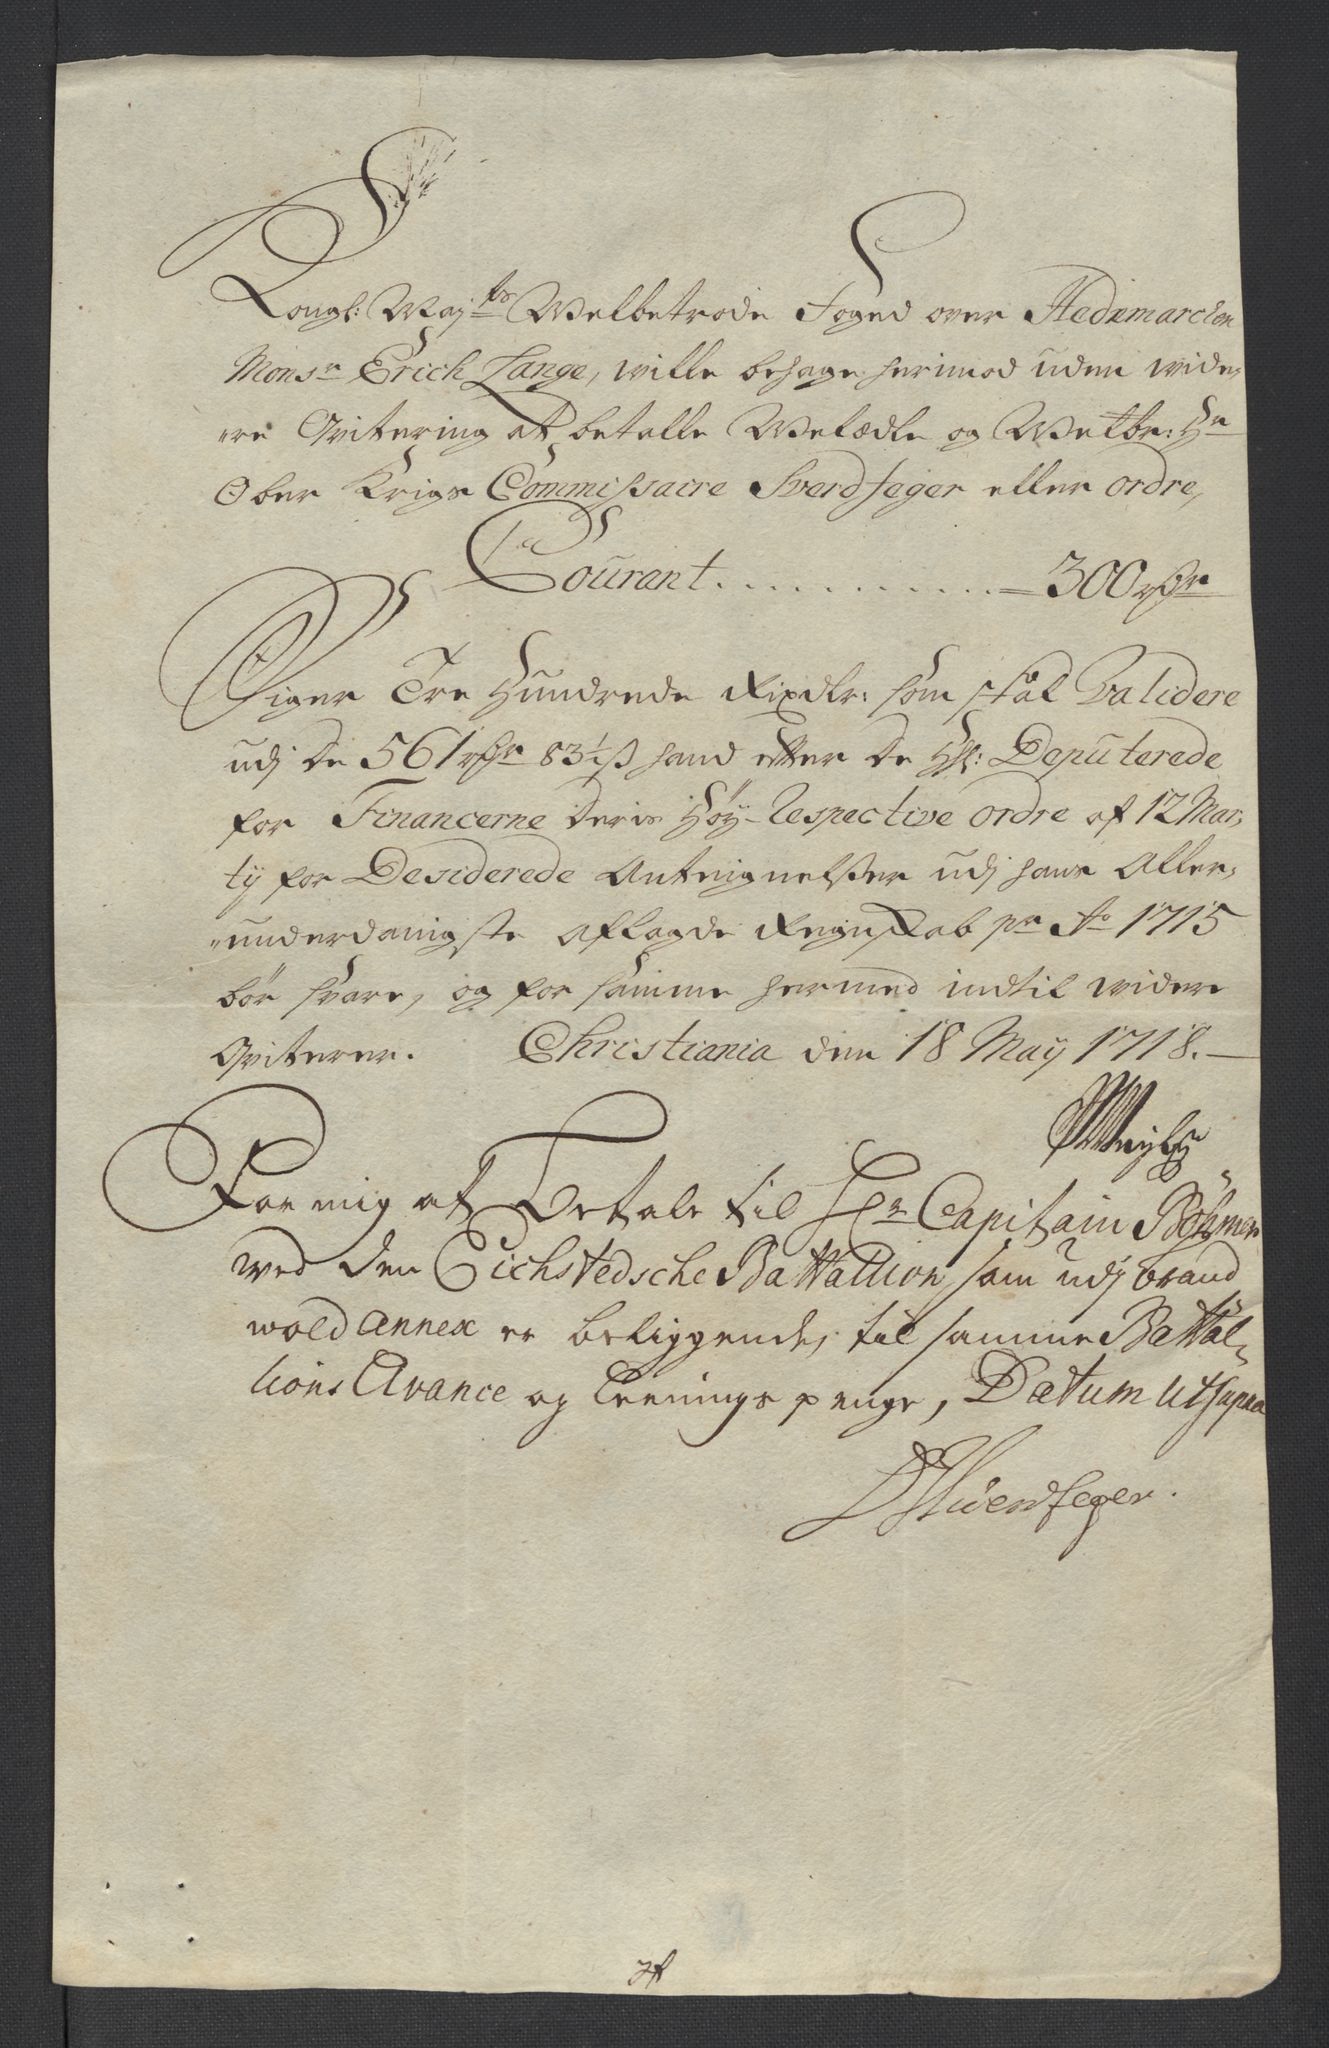 Kongl: Maj:ts Welbetrode Foged over Hedemarchen
Monsr Erich Lange, wille behage herimod uden wide,
re Qvitering at betalle Welædle og Welbr: Hr
Ober Krigs Commissaire Sverdfeger eller ordre,
Courant . . . . . . . . . . . . = 300 rdr
Siger Tre Hundrede Rixdlr: som skal Validere
udj de 561 rdr 83½ s hand efter de HH: Deputerede
for Financerne deris Høy-Respective ordre af 12 Mar,
tij for Desiderede Antegnelser udj hans Aller,
underdanigste aflagde Regnskab pr Ao 1715
bør svare, og for samme hermed indtil widere
Qviterer. Christiania den 18 Maij 1718. —
For mig at Betale til Hr Capitain Böhmen
wed den Eichstedsche Battallion, som udj brand
wold annex er beliggende, til samme Battal,
lions Avance og Lønnings penge, Datum ut supra
Sverdfeger.